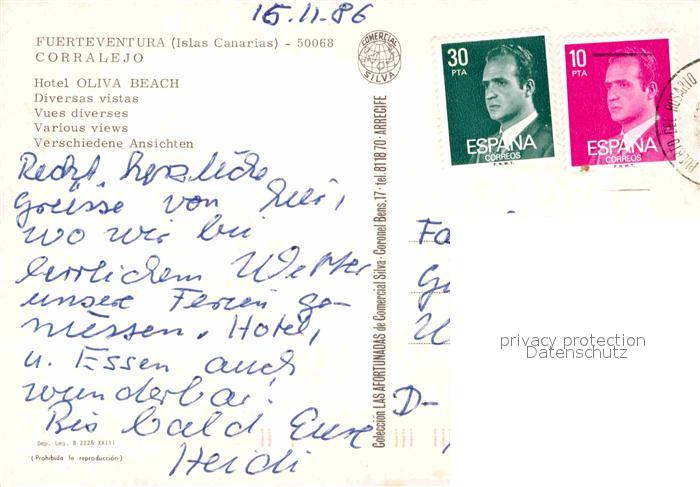 15.11.86
FUERTEVENTURA (Islas Canarias) - 50068
CORRALEJO
Hotel OLIVA BEACH
Diversas vistas
Vues diverses
Various views
Verschiedene Ansichten
COMERCIAL
SILVA
30
PTA
ESPAÑA
CORREOS
F.N.M.T.
10
PTA
ESPAÑA
CORREOS
F.N.M.T.
PUERTO DEL ROSARIO
Recht herzliche
Grüsse von hier,
wo wir bei
herrlichem Wetter
unsere Ferien ge-
niessen. Hotel,
u. Essen auch
wunderbar!
Bis bald Eure
Heidi
Dep. Leg. B 2226 XXIII
(Prohibida la reproducción)
Colección LAS AFORTUNADAS de Comercial Silva - Coronel Bens, 17 - tel. 81 18 70 - ARRECIFE
Fa
D-
privacy protection
Datenschutz